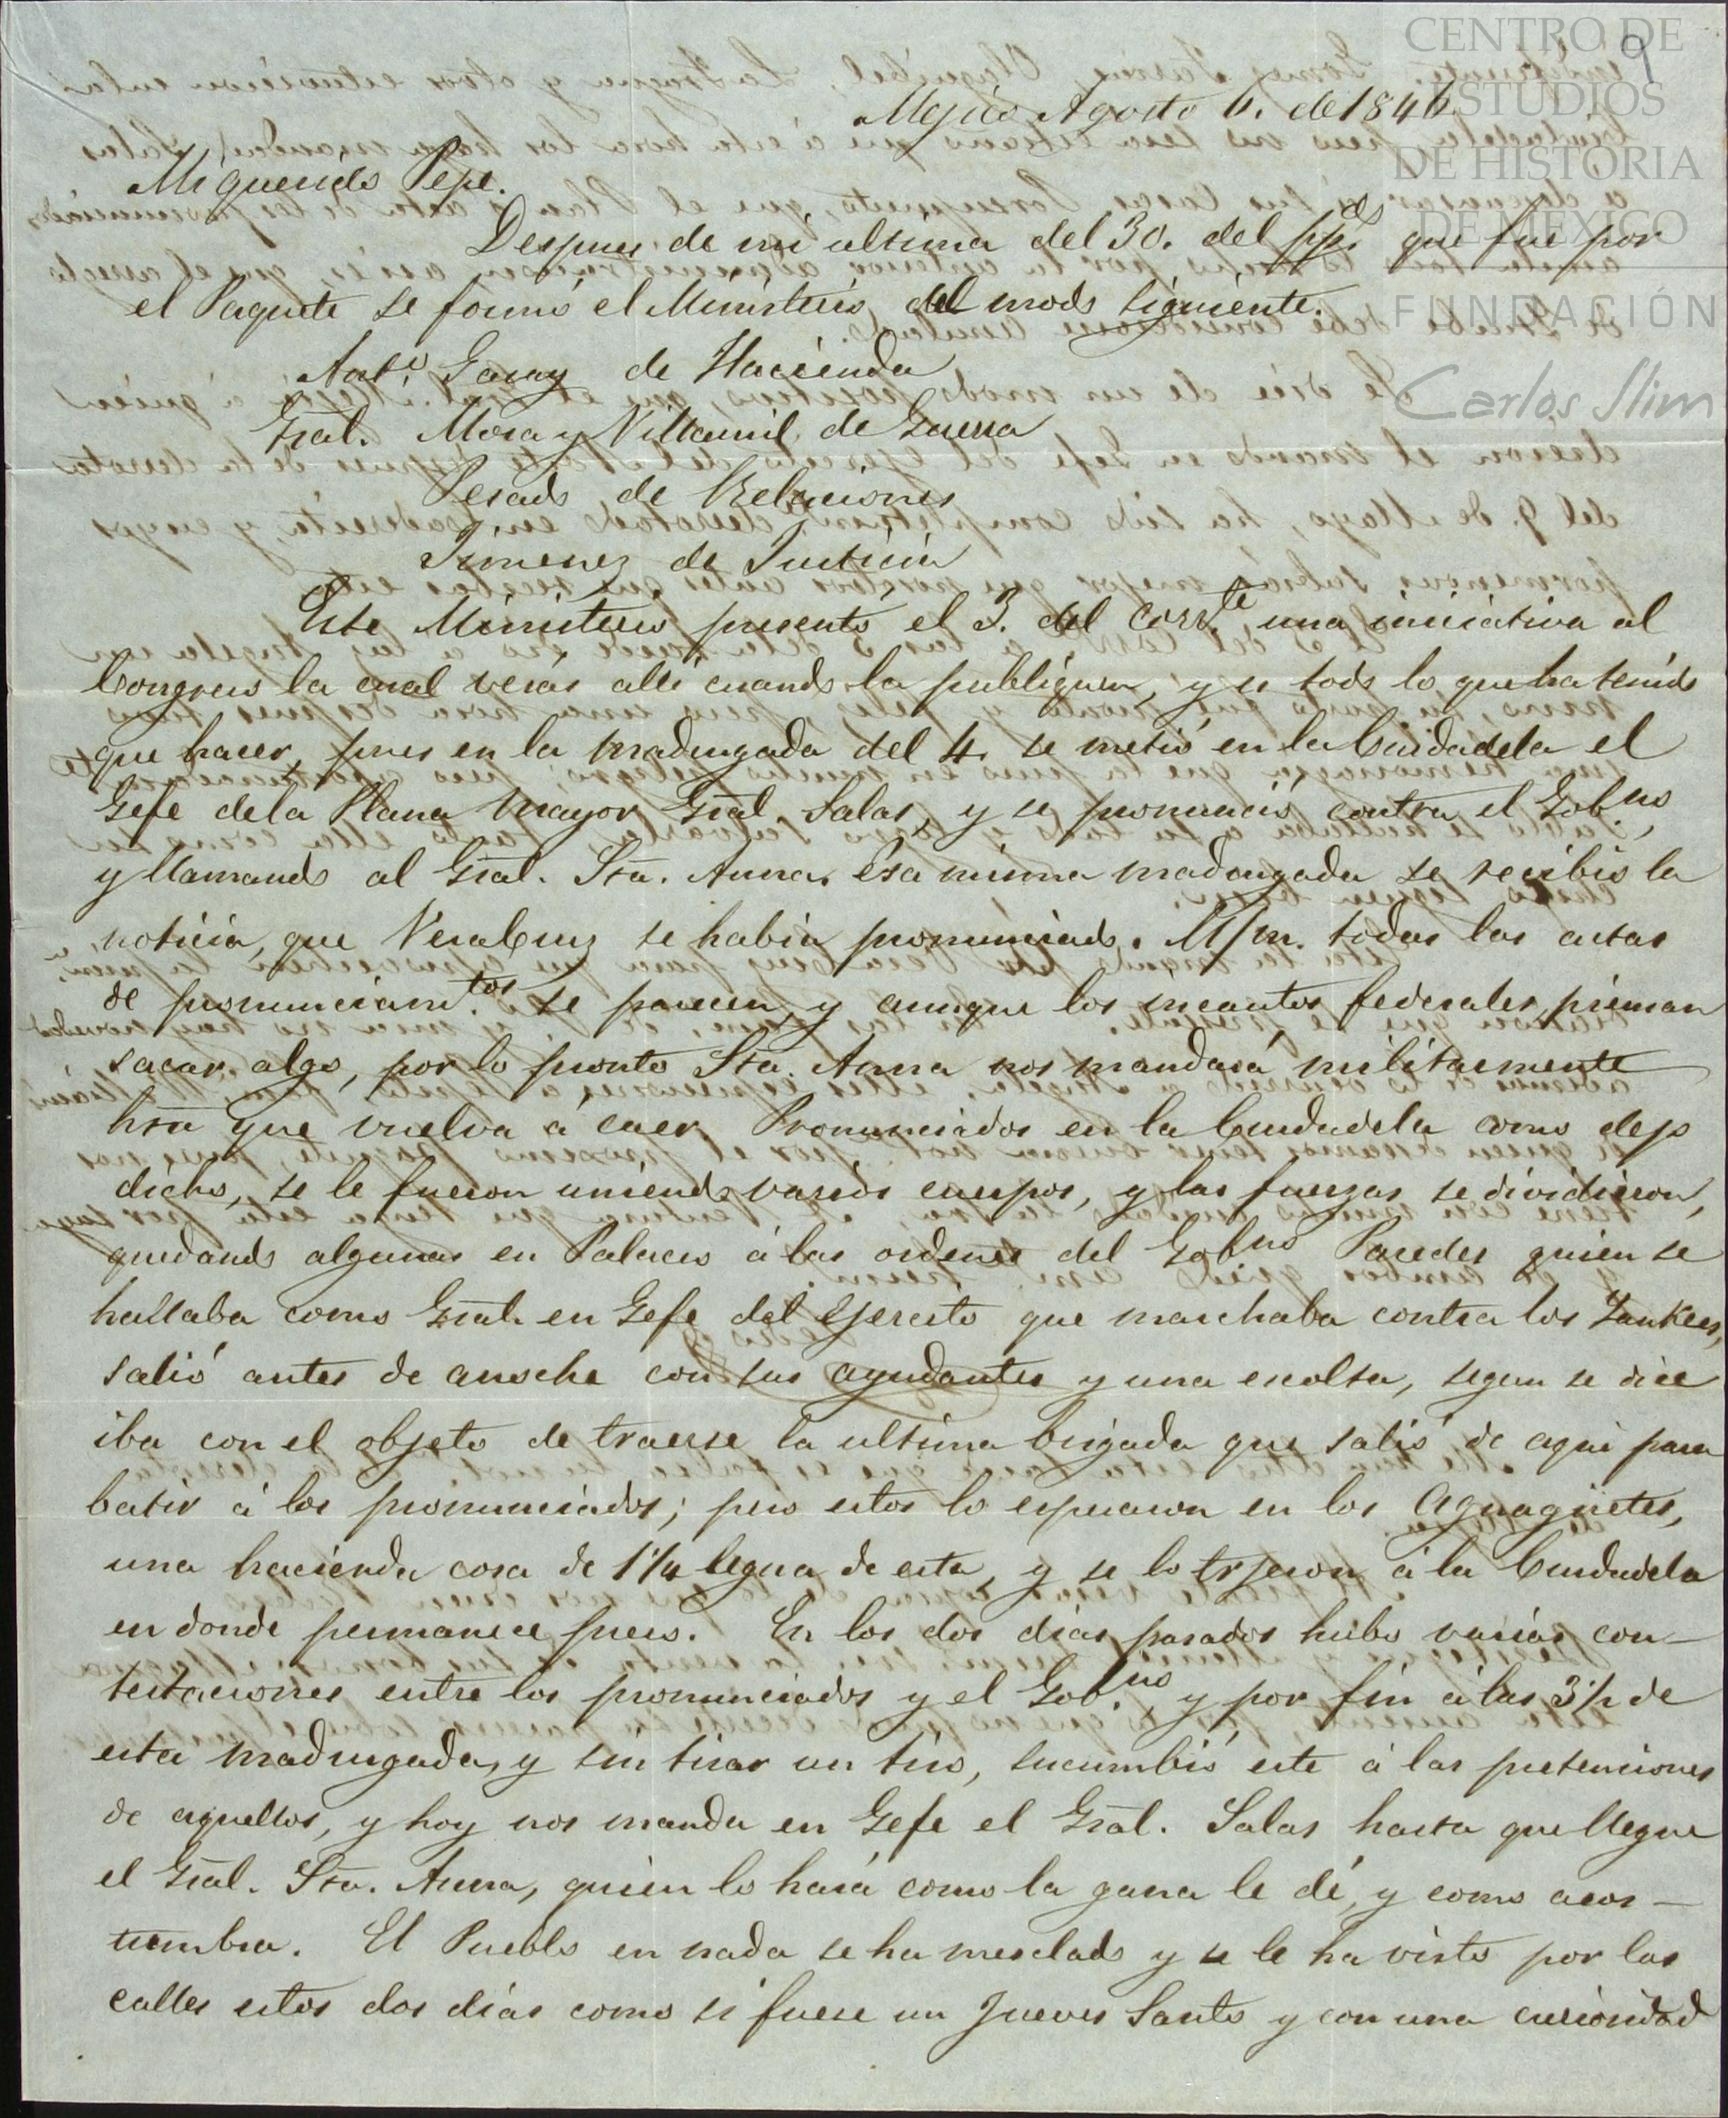 CENTRO DE
ESTUDIOS
DE HISTORIA
DE MEXICO
FUNDACIÓN
Carlos Slim
9
Mejico Agosto 6. de 1846
Mi querido Pepe.
Despues de mi ultima del 30. del pp.do que fue por
el Paquete se formó el Ministerio del modo siguiente.
Anto. Garay de Hacienda
Gral. Mora y Villamil de Guerra
Pesado de Relaciones
Jimenez de Justicia
Este Ministerio presentó el 3. del corr.te una iniciativa al
Congreso la cual verás allí cuando la publiquen, y es todo lo que ha tenido
que hacer, pues en la madrugada del 4. se metió en la Ciudadela el
Gefe de la Plana mayor Gral. Salas, y se pronunció contra el Gob.no,
y llamando al Gral. Sta. Anna. Esa misma madrugada se recibió la
noticia, que VeraCruz se habia pronunciado. M/m. todas las actas
de pronunciam.tos se parecen, y aunque los incautos federales, piensan
sacar algo, por lo pronto Sta. Anna nos mandará militarmente
hta que vuelva á caer. Pronunciados en la Ciudadela como dejo
dicho, se le fueron uniendo varios cuerpos, y las fuerzas se dividieron,
quedando algunas en Palacio á las ordenes del Gobno Paredes quien se
hallaba como Gral. en Gefe del Ejercito que marchaba contra los Yankees,
salió antes de anoche con sus ayudantes y una escolta, segun se dice
iba con el objeto de traerse la ultima brigada que salió de aqui para
batir á los pronunciados; pero estos lo esperaron en los Aguagüetes,
una hacienda cosa de 1 1/4 legua de esta, y se lo trjeron á la Ciudadela
en donde permanece preso. En los dos dias pasados hubo varias con-
testaciones entre los pronunciados y el Gob.no y por fin á las 3 1/2 de
esta madrugada, y sin tirar un tiro, sucumbió este á las pretenciones
de aquellos, y hoy nos manda en Gefe el Gral. Salas hasta que llegue
el Gral. Sta. Anna, quien lo hará como la gana le dé, y como acos-
tumbra. El Pueblo en nada se ha mesclado y se le ha visto por las
calles estos dos dias como si fuese un Jueves Santo y con una curiosidad